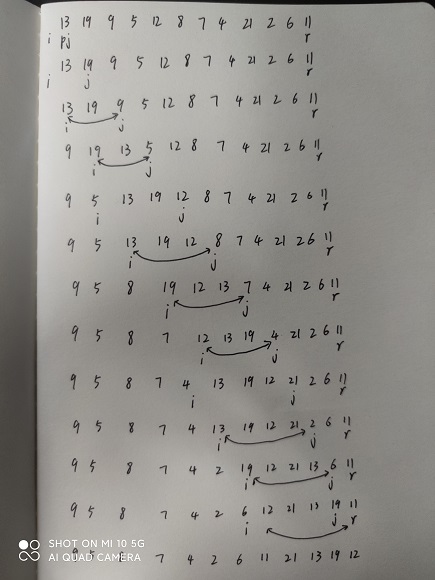 13 19 9 5 12 8 7 4 21 2 6 11
i pj r
13 19 9 5 12 8 7 4 21 2 6 11
i j r
13 19 9 5 12 8 7 4 21 2 6 11
i j r
9 19 13 5 12 8 7 4 21 2 6 11
i j r
9 5 13 19 12 8 7 4 21 2 6 11
i j r
9 5 13 19 12 8 7 4 21 2 6 11
i j r
9 5 8 19 12 13 7 4 21 2 6 11
i j r
9 5 8 7 12 13 19 4 21 2 6 11
i j r
9 5 8 7 4 13 19 12 21 2 6 11
i j r
9 5 8 7 4 13 19 12 21 2 6 11
i j r
9 5 8 7 4 2 19 12 21 13 6 11
i j r
9 5 8 7 4 2 6 12 21 13 19 11
i j r
SHOT ON MI 10 5G
AI QUAD CAMERA
9 5 7 4 2 6 11 21 13 19 12